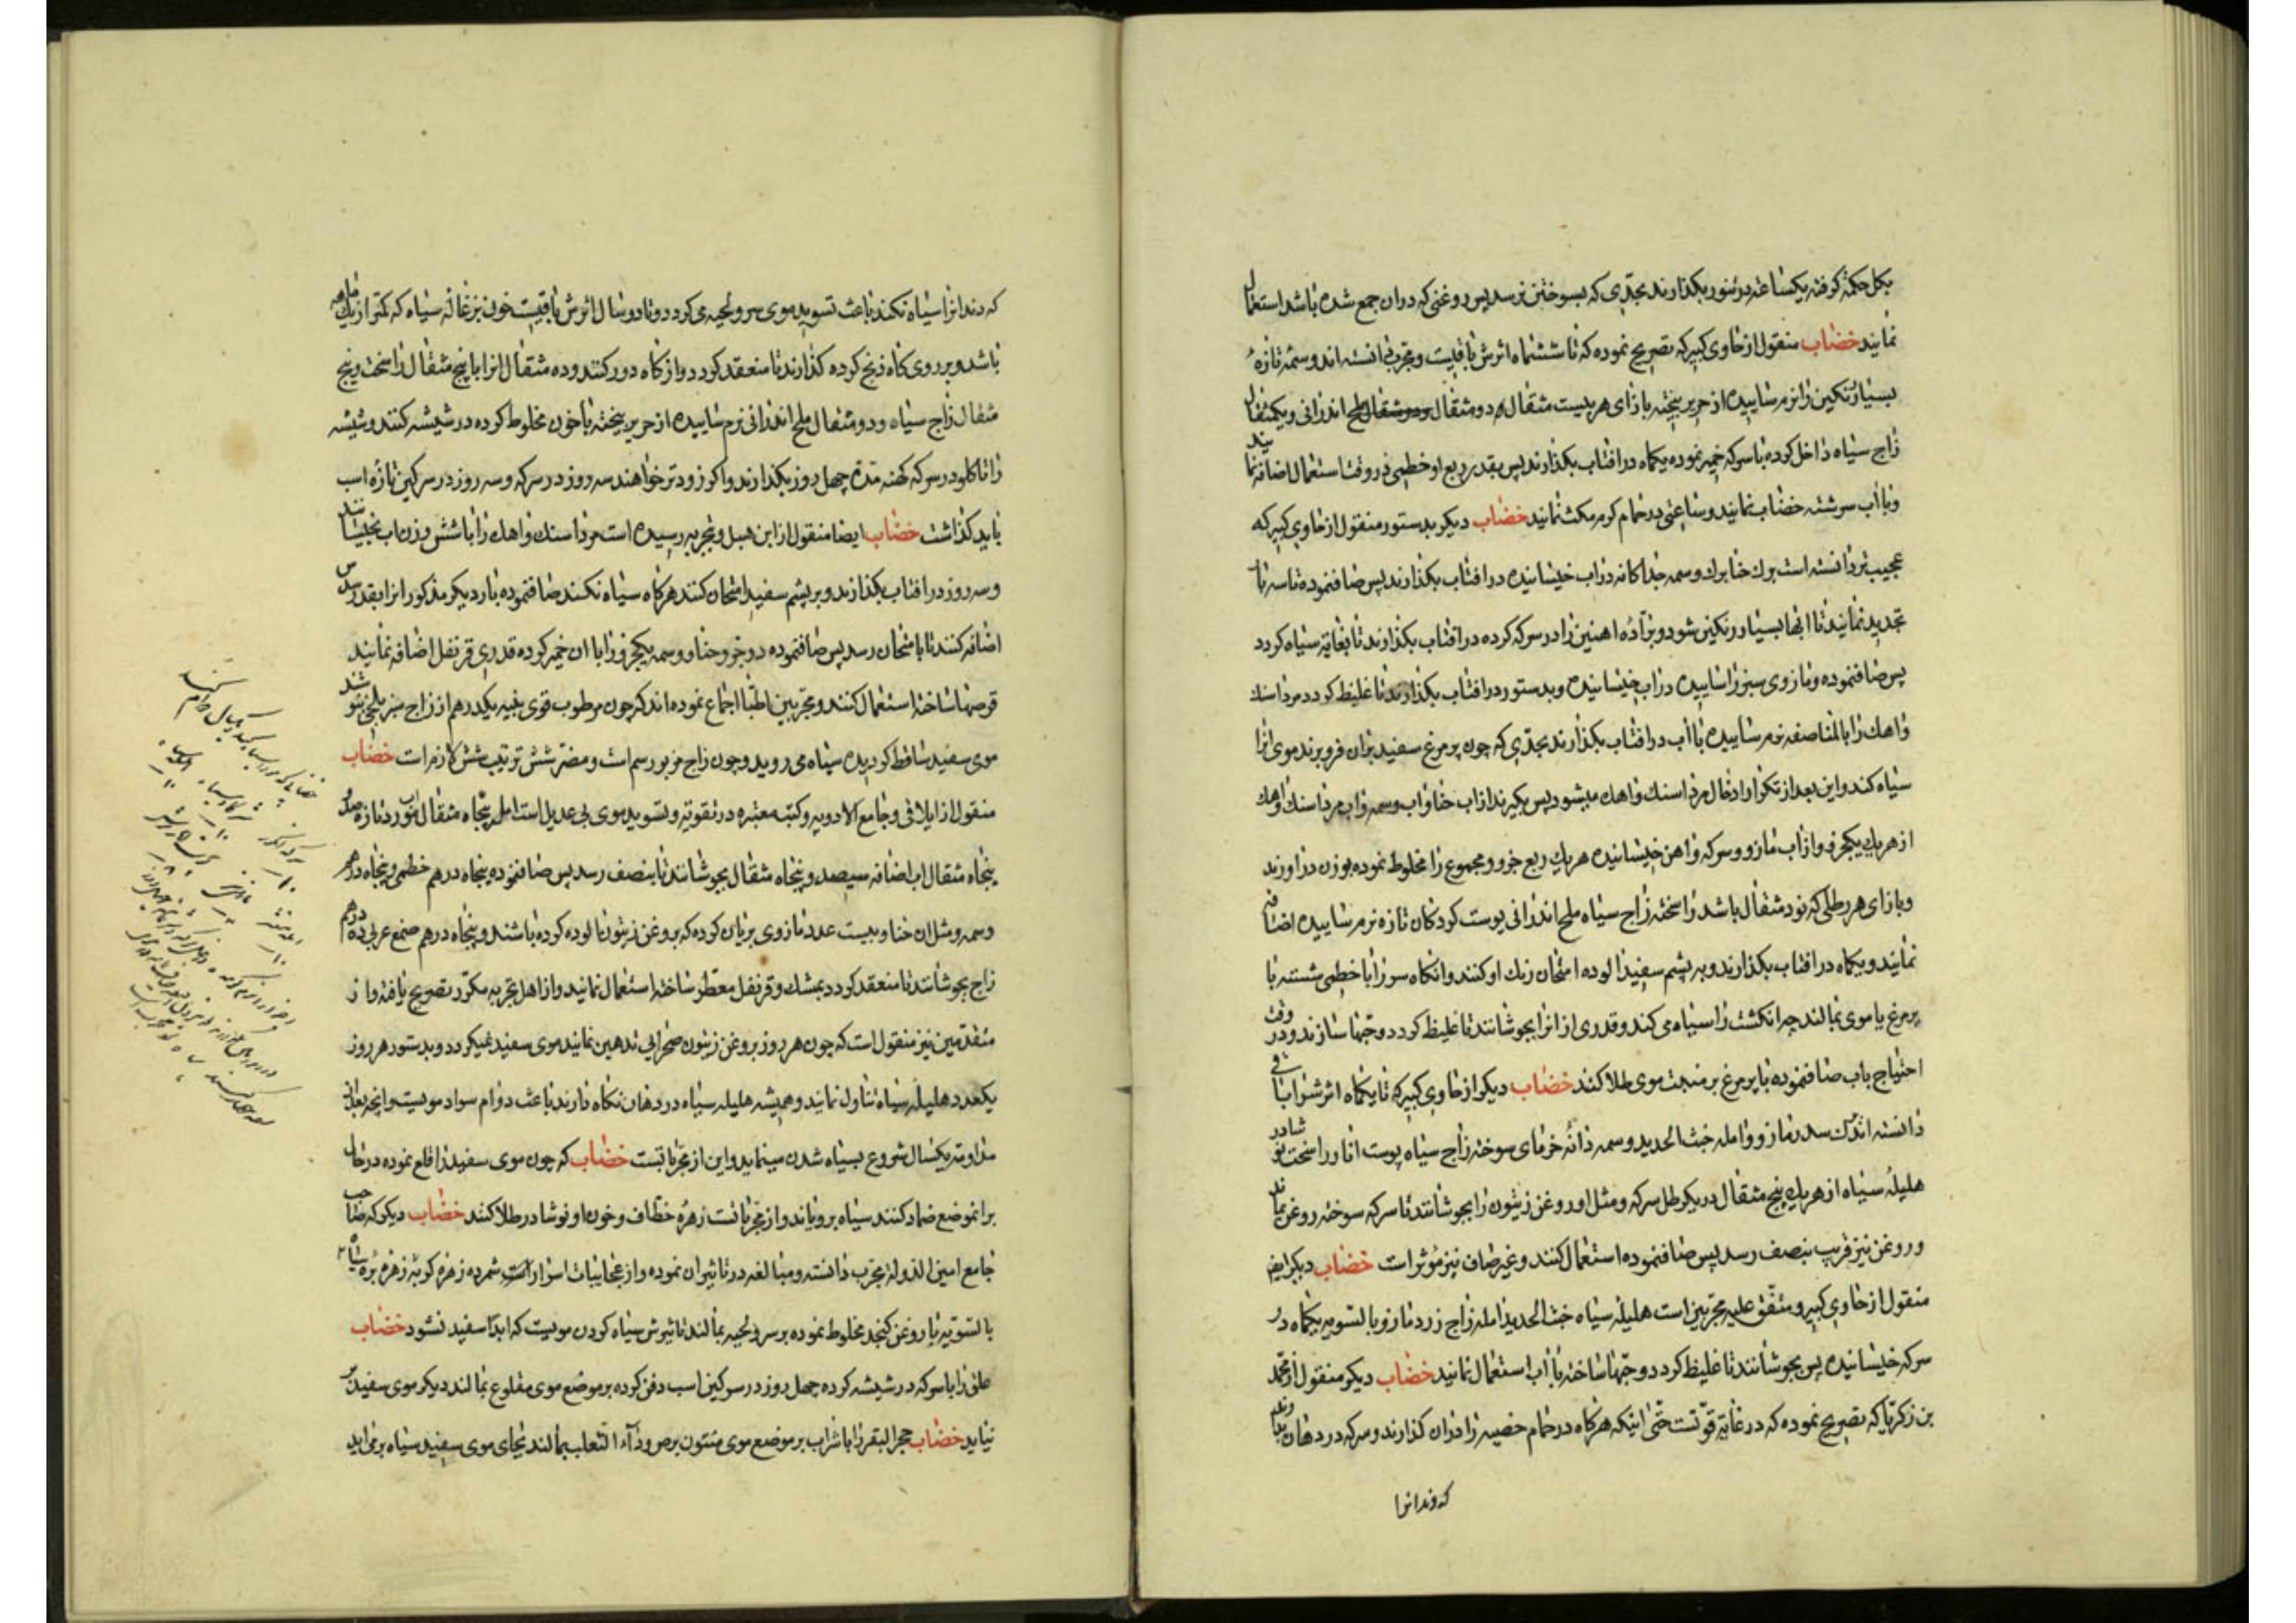 بکل حکمة کرفته یکساعه در تنور بکذارند بحدی که بسوختن نرسد پس روغنی که دران جمع شده باشد استعمال
نمایند خضاب منقول از حاوی کبیر که تصریح نموده که تا ششماه اثرش باقیست و مجرب دانسته اند وسمه تازهٔ
بسیار رنکین را نرم ساییده از حریر بیخته بازای هر بیست مثقال او دو مثقال ملح اندرانی و یکمثقال
زاج سیاه داخل کرده با سرکه خمیر نموده یکماه در افتاب بکذارند پس بقدر ربع او خطمی در وقت استعمال اضافه نمایند
و با آب سرشته خضاب نمایند و ساعتی در حمام کرم مکث نمایند خضاب دیکر بدستور منقول از حاوی کبیر که
عجیب تر دانسته است برك حنا برك وسمه جداکانه در اب خیسانیده در افتاب بکذارند پس صاف نموده تا سه بار
تجدید نمایند تا ابها بسیار رنکین شود و برادهٔ اهنین را در سرکه کرده در افتاب بکذارند تا بغایة سیاه کردد
پس صاف نموده و مازوی سبز را ساییده در اب خیسانیده و بدستور در افتاب بکذارند تا غلیظ کردد مرداسنك
و اهك را بالمناصفه نرم ساییده با آب در افتاب بکذارند بحدی که چون پر مرغ سفید بران فرو برند موی انرا
سیاه کند و این بعد از تکرار ادخال مرداسنك و اهك میشود پس بکیرند از اب حنا و اب وسمه و اب مرداسنك و اهك
از هریك یکجزو و از اب مازو و سرکه و اهن خیسانیده هریك ربع جزو و مجموع را مخلوط نموده بوزن دراورند
و بازای هر رطلی که نود مثقال باشد راسخته زاج سیاه ملح اندرانی پوست کردکان تازه نرم ساییده اضافه
نمایند و یکماه در افتاب بکذارند و به پشم سفید الوده امتحان رنك او کنند و انکاه سر را با خطمی شسته با
پر مرغ یا موی بمالند چه انکشت را سیاه می کند و قدری از انرا بجوشانند تا غلیظ کردد و حبها سازند و در وقت
احتیاج باب صاف نموده با پر مرغ بر منبت موی طلا کنند خضاب دیکر از حاوی کبیر که تا یکماه اثرش را باقی
دانسته اند مازو و امله خبث الحدید وسمه دانهٔ خرمای سوخته زاج سیاه پوست انار راسخت نوشادر
هلیلهٔ سیاه از هریك پنج مثقال در یکرطل سرکه و مثل او روغن زیتون را بجوشانند تا سرکه سوخته روغن بماند
و روغن نیز قریب بنصف رسد پس صاف نموده استعمال کنند و غیر صاف نیز مؤثر است خضاب دیکر ایضا
منقول از حاوی کبیر و متفق علیه مجربین است هلیلهٔ سیاه خبث الحدید امله زاج زرد مازو بالسویه یکماه در
سرکه خیسانیده پس بجوشانند تا غلیظ کردد و حبها ساخته با آب استعمال نمایند خضاب دیکر منقول از محمد
بن زکریا که تصریح نموده که در غایة قوتست حتی اینکه هرکاه در حمام خضیب را دران کذارند و سرکه در دهان
که دندانرا
که دندانرا سیاه نکند باعث تسوید موی سر و لحیه می کردد و تا دو سال اثرش باقیست خون بزغاله سیاه که کمتر از یك ماهه
باشد و بر روی کاه ذبح کرده کذارند تا منعقد کردد و از کاه دور کنند و ده مثقال انرا با پنج مثقال راسخت و پنج
مثقال زاج سیاه و دو مثقال ملح اندرانی نرم ساییده از حریر بیخته با خون مخلوط کرده در شیشه کنند و شیشه
را تا کلو در سرکه کهنه مدة چهل روز بکذارند و اکر زودتر خواهند سه روز در سرکه و سه روز در سرکین تازه اسب
باید کذاشت خضاب ایضا منقول از ابن هبل و بتجربه رسیده است مرداسنك و اهك را با شش وزن اب بخیسانند
و سه روز در افتاب بکذارند و بر پشم سفید امتحان کنند هرکاه سیاه نکند صاف نموده بار دیکر مذکور انرا بقدر سدس
اضافه کنند تا بامتحان رسد پس صاف نموده دو جزو حنا و وسمه یکجزو را با ان خمیر کرده قدری قرنفل اضافه نمایند
قرصها ساخته استعمال کنند و مجربین اطبا اجماع نموده اند که چون مرطوب قوی بنیه یکدرهم از زاج سبز بلخی بنوشد
موی سفید ساقط کردیده سیاه می روید و چون زاج مزبور سم است و مضر شش ترتیب شش لازم است خضاب
منقول از ایلاقی و جامع الادویه و کتب معتبره در تقویة و تسوید موی بی عدیل است امله پنجاه مثقال اب مورد تازه صد و
پنجاه مثقال اب اضافه سیصد و پنجاه مثقال بجوشانند تا بنصف رسد پس صاف نموده پنجاه درهم خطمی و پنجاه درهم
وسمه و مثل ان حنا و بیست عدد مازوی بریان کرده که بروغن زیتون الوده کرده باشند و پنجاه درهم صمغ عربی ده درهم
زاج بجوشانند تا منعقد کردد بمشك و قرنفل معطر ساخته استعمال نمایند و از اهل تجربه مکرر تصریح یافته و از
متقدمین نیز منقول است که چون هر روز بروغن زیتون صحرایی تدهین نمایند موی سفید نمیکردد و بدستور هر روز
یکعدد هلیلهٔ سیاه تناول نمایند و همیشه هلیله سیاه در دهان نکاه دارند باعث دوام سواد مویست و انچه بعد از
مداومة یکسال شروع بسیاه شدن مینماید و این از مجرباتست خضاب که چون موی سفید را قلع نموده در حال
برانموضع ضماد کنند سیاه برویاند و از مجرباتست زهرهٔ خطاف و خون او نوشادر طلا کنند خضاب دیکر که صاحب
جامع امین الدوله مجرب دانسته و مبالغه در تاثیر ان نموده و از عجاییات اسرار است شمرده زهره کربه زهره بره سیاه
بالسویه با روغن کنجد مخلوط نموده بر سر و لحیه بمالند تاثیرش سیاه کردن مویست که ابدا سفید نشود خضاب
علق را با سرکه در شیشه کرده چهل روز در سرکین اسب دفن کرده بر موضع موی مقلوع بمالند دیکر موی سفید بر
نیاید خضاب حجر البقر را با شراب بر موضع موی منتون برص و داء الثعلب بمالند بجای موی سفید سیاه برمی اید